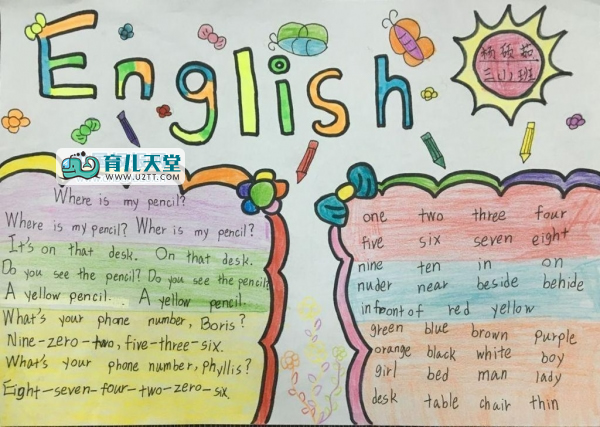 English
杨硕茹
三(1)班
育儿天堂
www.uztt.com
Where is my pencil?
Where is my pencil? Wher is my pencil?
It's on that desk. On that desk.
Do you see the pencil? Do you see the pencil?
A yellow pencil. A yellow pencil.
What's your phone number, Boris?
Nine-zero-two, five-three-six.
What's your phone number, Phyllis?
Eight-seven-four-two-zero-six.
one two three four
five six seven eight
nine ten in on
nuder near beside behide
infront of red yellow
green blue brown purple
orange black white boy
girl bed man lady
desk table chair thin